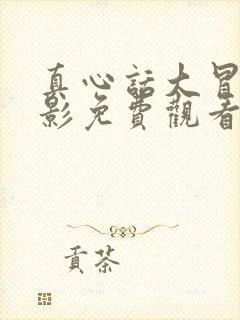 真心話大冒
影免費觀看
貢茶